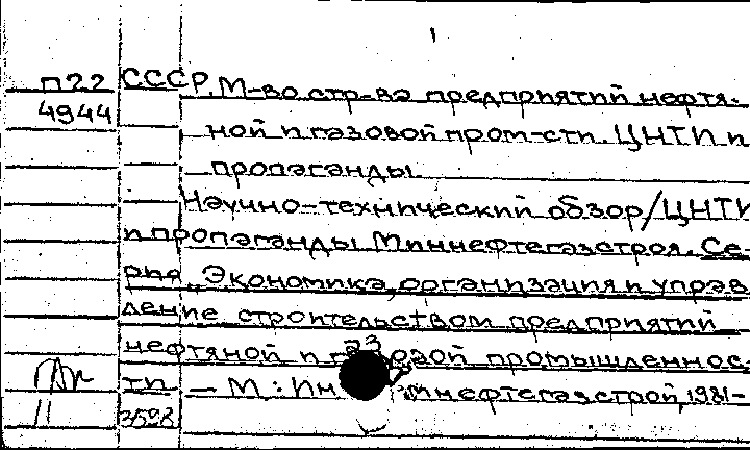 П22 СССР. М-во стр-ва предприятий нефтя-
4944 ной и газовой пром-сти. ЦНТИ и
пропаганды
Научно-технический обзор/ЦНТИ
и пропаганды Миннефтегазстроя. Се-
рия „Экономика, организация и управ
ление строительством предприятий
нефтяной и газовой промышленнос-
ти — М: Ин нефтегазстрой, 1981-